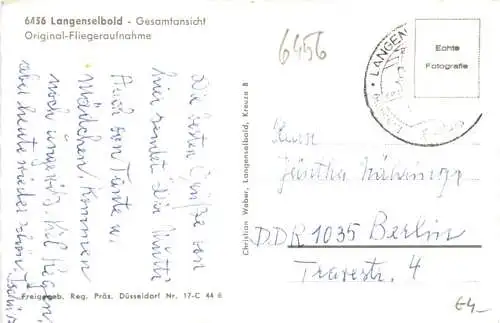 6456 Langenselbold - Gesamtansicht
Original-Fliegeraufnahme
6456
LANGEN
Echte
Fotografie
Die besten Grüße von
hier sendet Dir Mutti
Auch von Tante u.
Mädchen kommen
noch Regen,
aber heute wieder schön.
Christian Weber, Langenselbold, Kreuzg 8
Herrn
Günther
DDR 1035 Berlin
Travestr. 4
Freigegeb. Reg. Präs. Düsseldorf Nr. 17-C 44 6
€4-